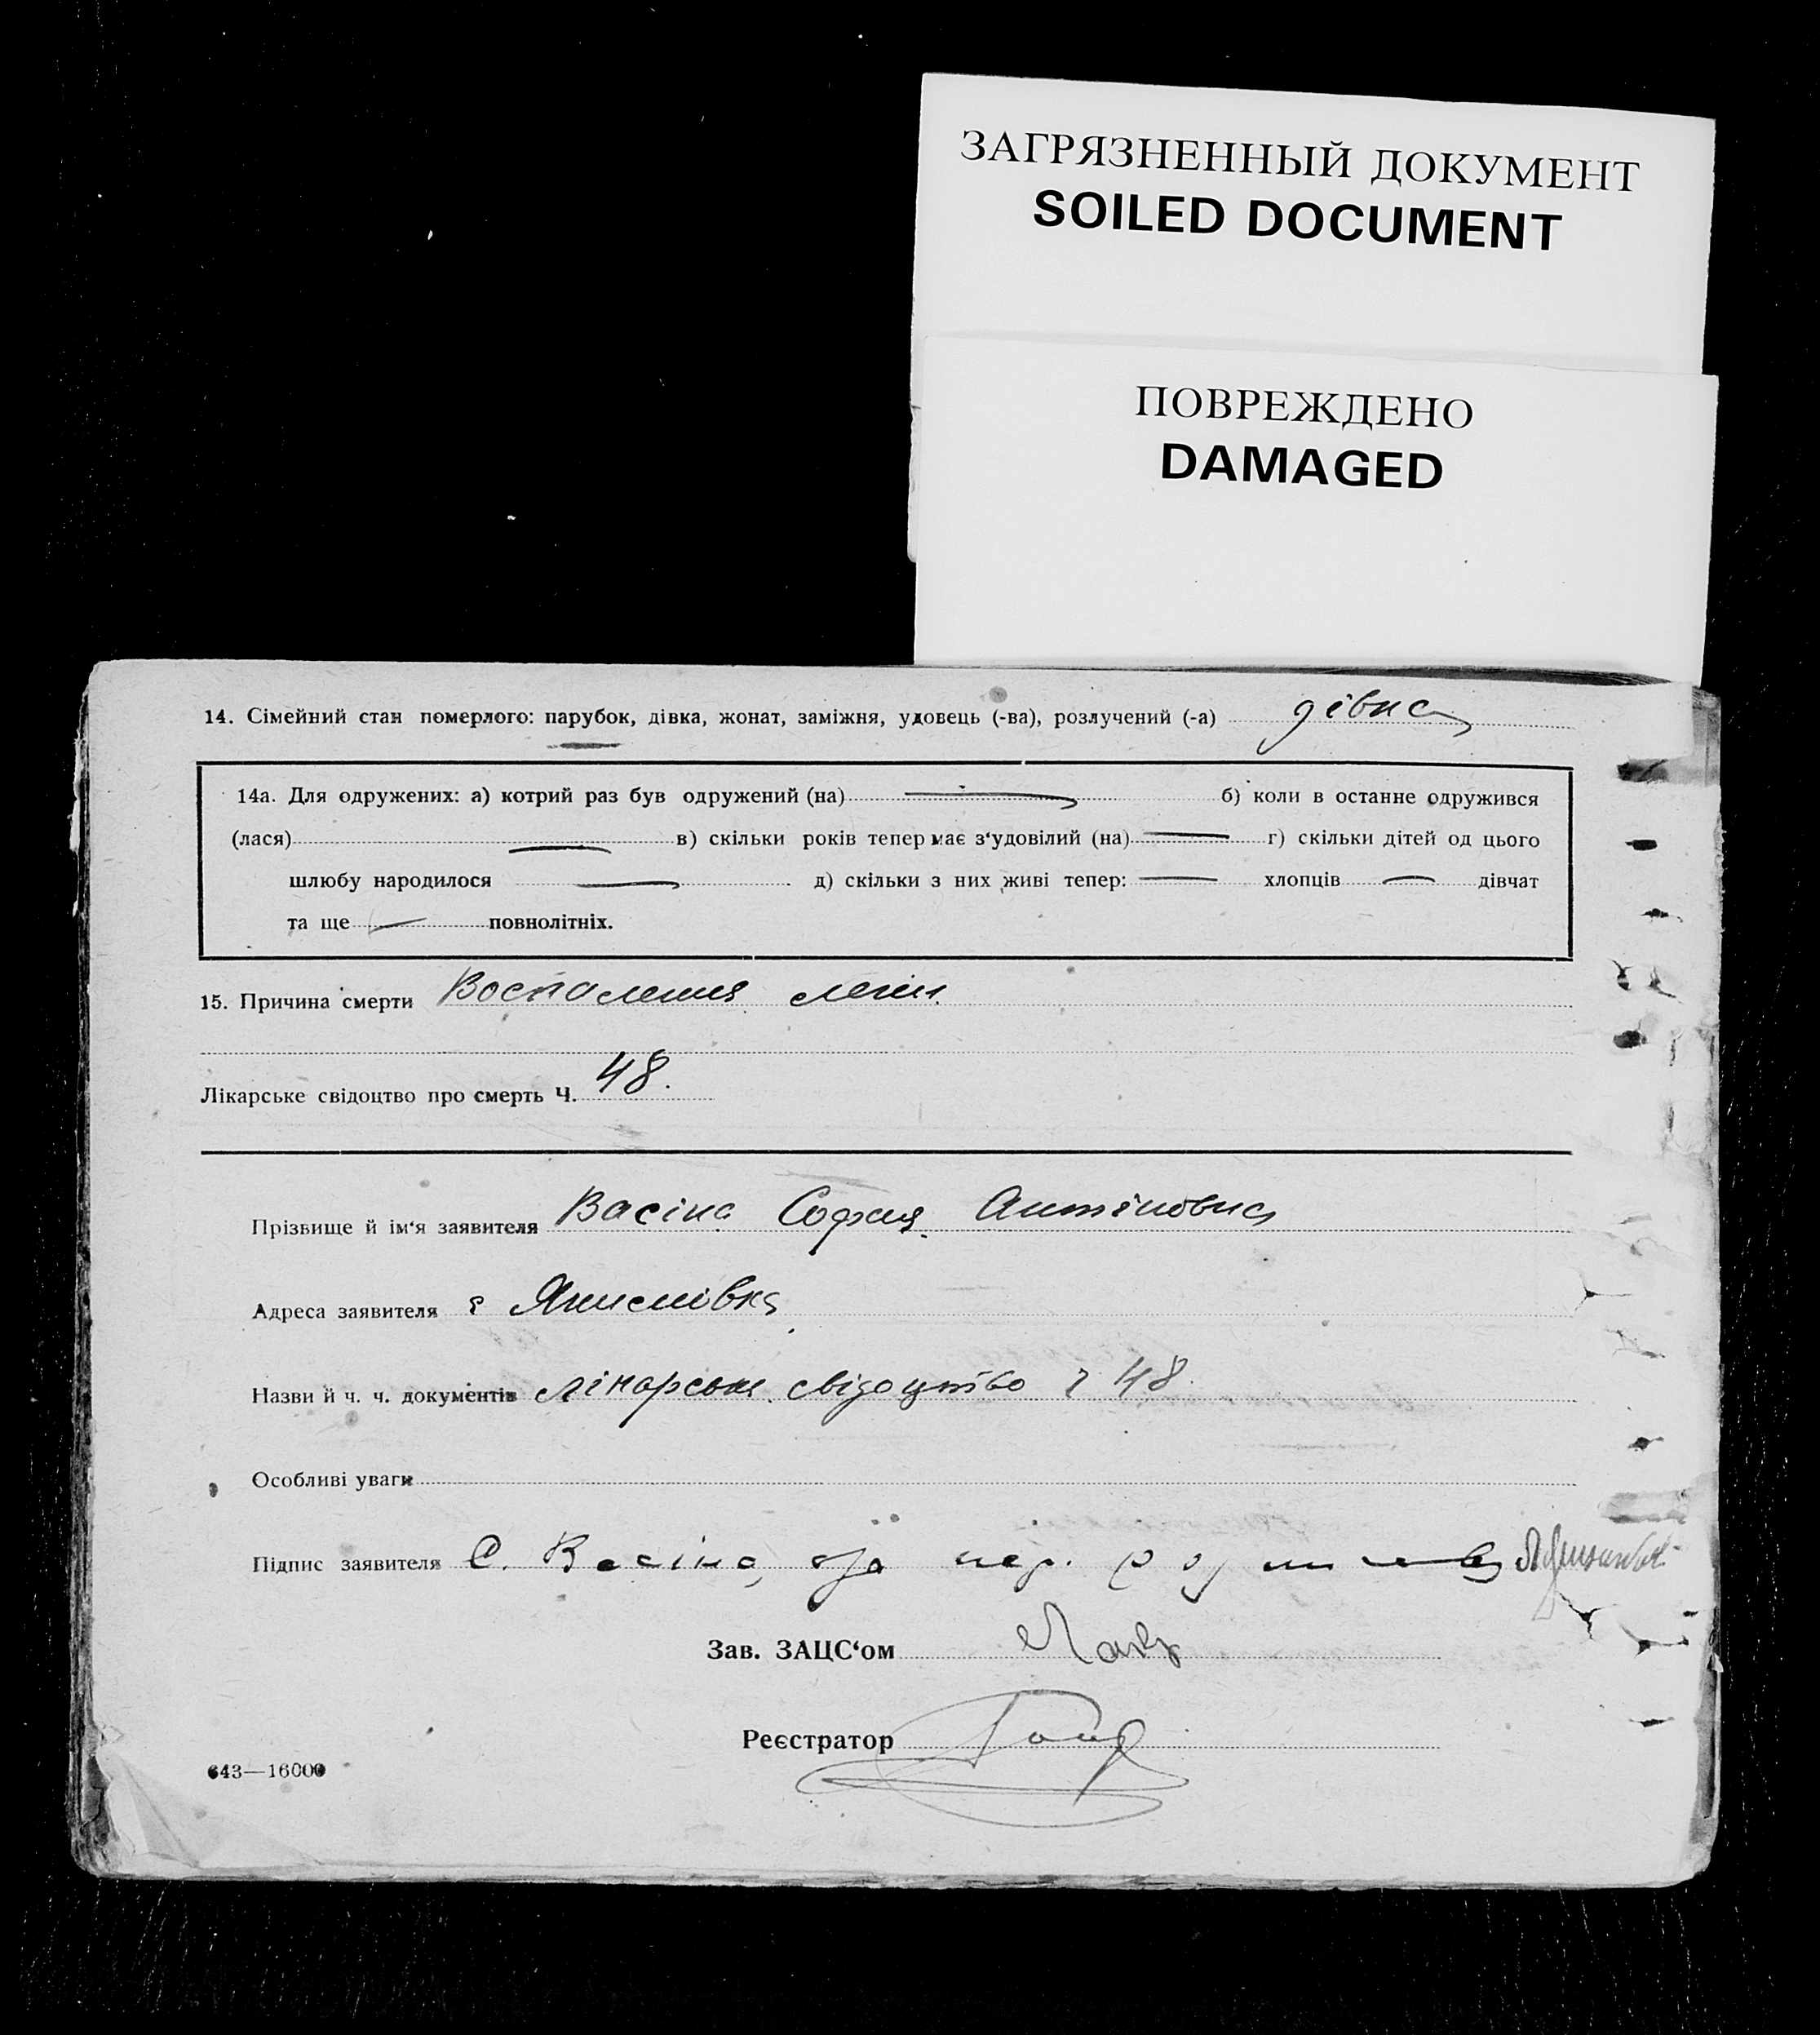 ЗАГРЯЗНЕННЫЙ ДОКУМЕНТ
SOILED DOCUMENT
ПОВРЕЖДЕНО
DAMAGED
14. Сімейний стан померлого: парубок, дівка, жонат, заміжня, удовець (-ва), розлучений (-а) дівка
14а. Для одружених: а) котрий раз був одружений (на) — б) коли в останне одружився
(лася) — в) скільки років тепер має з‘удовілий (на) — г) скільки дітей од цього
шлюбу народилося — д) скільки з них живі тепер: — хлопців — дівчат
та ще — повнолітніх.
15. Причина смерти Воспаления легких
Лікарське свідоцтво про смерть Ч. 48.
Прізвище й ім‘я заявителя Васіна София
Адреса заявителя
Назви й ч. ч. документів лікарське свідоцтво ч 48.
Особливі уваги
Підпис заявителя С. Васіна
Зав. ЗАЦС‘ом
Реєстратор
643—16000